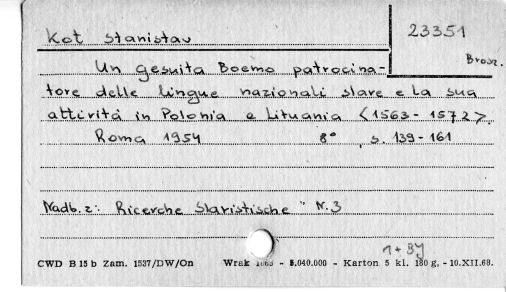 Kot Stanisław
23351
Brosz.
Un gesuita Boemo patrocina-
tore delle lingue nazionali slave e la sua
attività in Polonia e Lituania <1563-1572>.
Roma 1954 8° , s. 139-161
Nadb. z: Ricerche Slavistische" N.3
1+BJ
CWD B 15 b Zam. 1537/DW/On Wrak - 5.040.000 - Karton 5 kl. 180 g, - 10.XII.68.